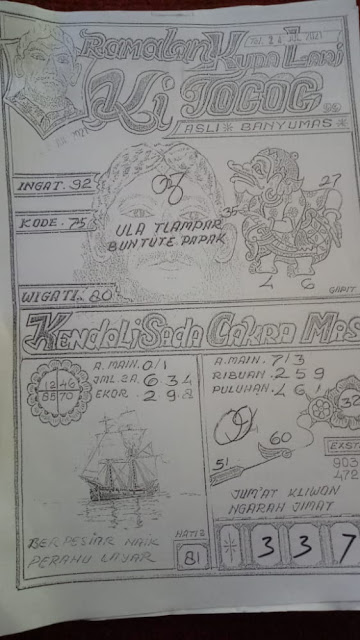 RAMALAN KUDA LARI
Ki TOGOG
ASLI * BANYUMAS
INGAT. 92
KODE. 75
WIGATI. 80
ULA TLAMPAR
BUNTUTE. PAPAK
35
27
4 6
GAPIT
KENDALI SADA CAKRA MAS
A. MAIN. 0/1
JML 2A. 6 3 4
EKOR. 2 9 8
12 46
85 70
BERPESIAR NAIK
PERAHU LAYAR
81
A. MAIN. 7/3
RIBUAN. 2 5 9
PULUHAN. 4 6 1
32
60
51
903
472
JUM'AT KLIWON
NGARAH JIMAT
* 3 3 7